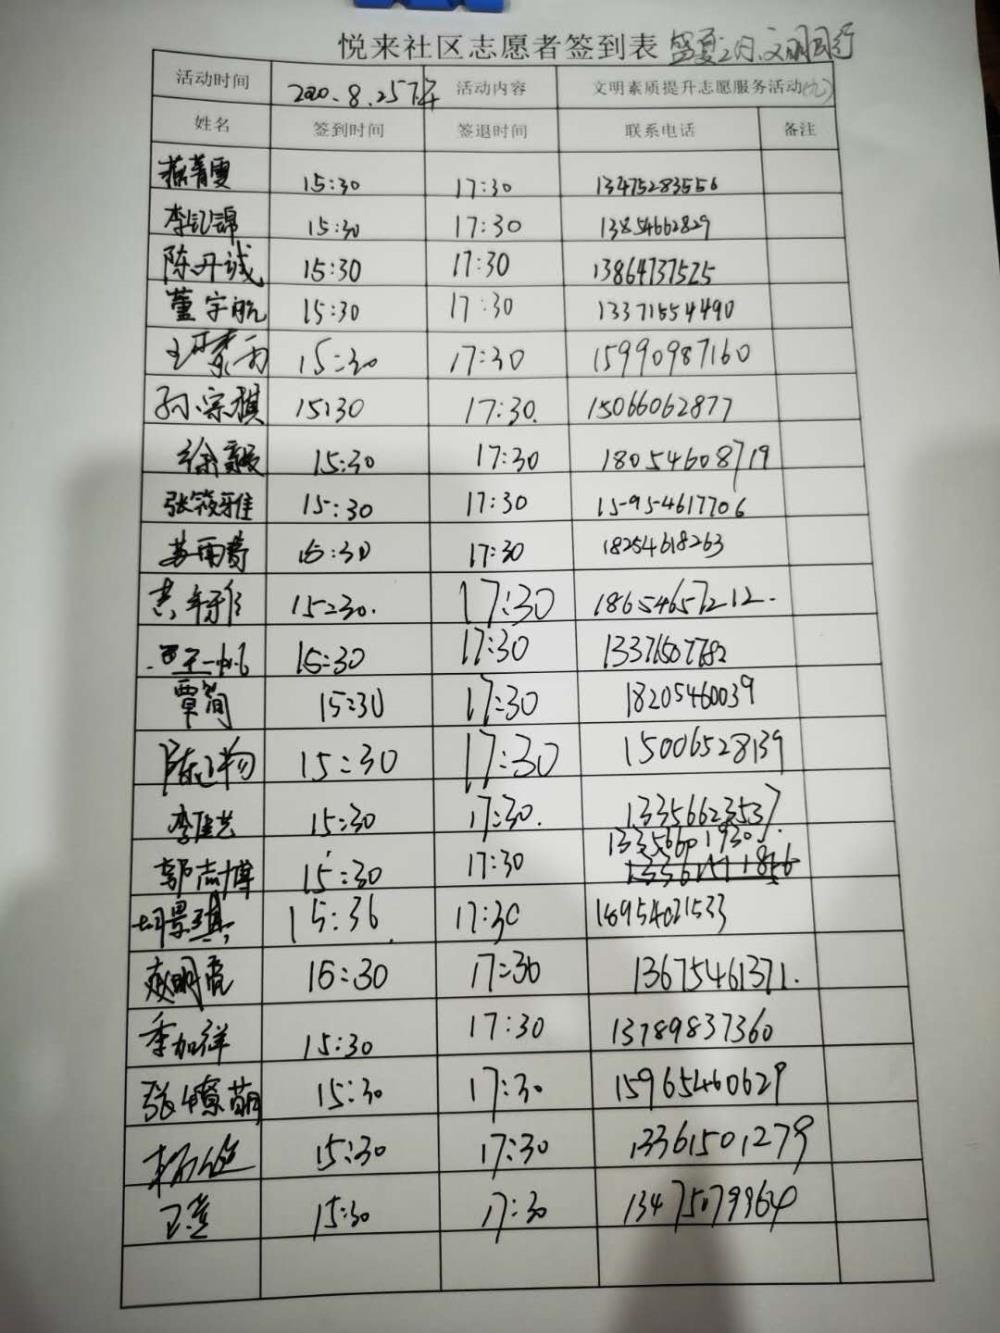 悦来社区志愿者签到表 盛夏之门、文明同行
活动时间 2020.8.25下午 活动内容 文明素质提升志愿服务活动(九)
姓名 签到时间 签退时间 联系电话 备注
15:30 17:30 13475283556
李钇锦 15:30 17:30 13854662829
陈丹诚 15:30 17:30 13864737525
董宇航 15:30 17:30 13371554490
15:30 17:30 15990987160
孙宗祺 15:30 17:30. 15066062877
徐毅 15:30 17:30 18054608719
张筱雅 15:30 17:30 15954617706
苏雨菁 15:30 17:30 18254618263
15:30. 17:30 18654657212.
15:30 17:30 13371507782
覃简 15:30 17:30 18205460039
15:30 17:30 15006528139
李佳艺 15:30 17:30. 13356623537
郭志博 15:30 17:30 13356601930.
15:36 17:30 18954021533
赵明亮 15:30 17:30 13675461371.
季加祥 15:30 17:30 13789837360
张 萌 15:30 17:30 15965460629
杨 15:30 17:30 13361501279
15:30 17:30 13475079964